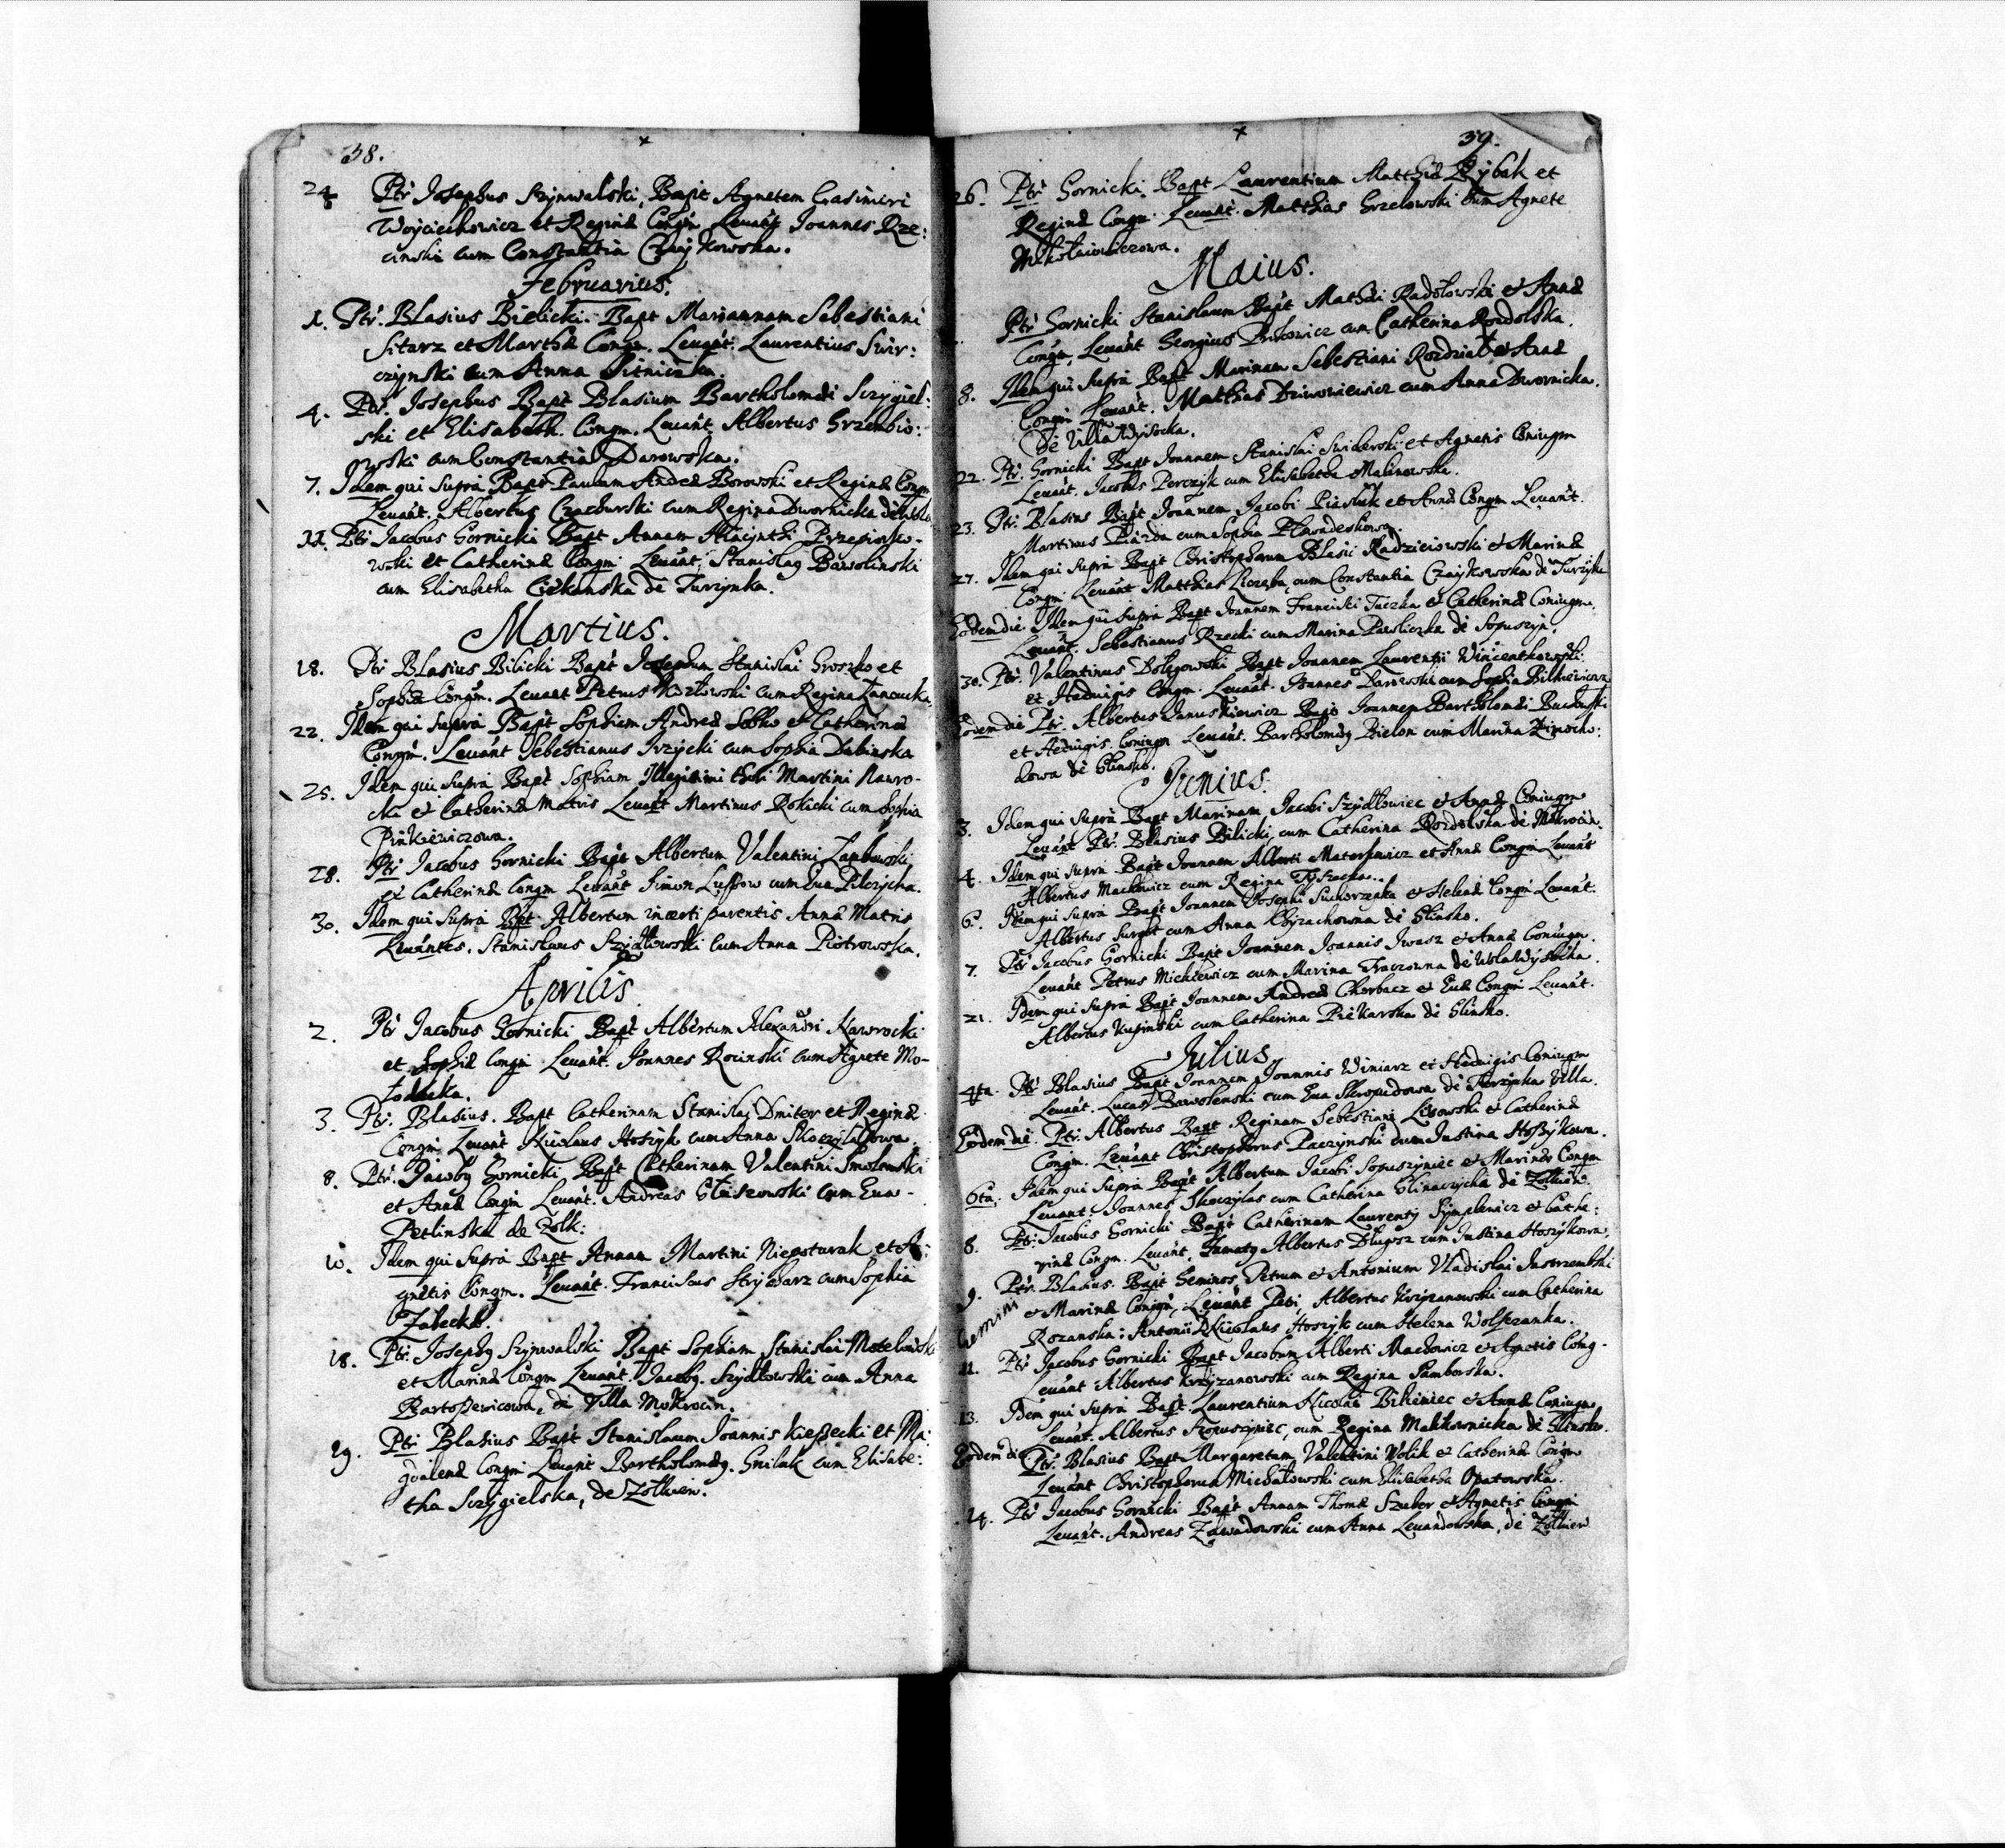 38.
24 Ptr Josephus Szynwalski, Bapt Agnetem Casimiri
Wojciechowicz et Reginæ Congm Levant Joannes Rze:
cinski cum Constantia Czaykowska.
Februarius.
1. Ptr. Blasius Bielicki. Bapt Mariannam Sebestiani
Sitarz et Marthæ Congm. Levant. Laurentius Swir:
czynski cum Anna
4. Ptr. Josephus Bapt Blasium Bartholomæi Szczygiel:
ski et Elisabeth. Congm. Levant. Albertus Grzembio:
wski cum Constantia Darowska.
7. Idem qui supra Bapt Paulum Andreæ Borowski et Reginæ Congm
Levant. Albertus Czachurski cum Regina Dwornicka de
11. Ptr Jacobus Gornicki Bapt Annam Hiacynthi Przepiorko-
wski et Catherinæ Congm Levant. Stanislaq Bawolinski
cum Elisabetha Ciekanska de Turzynka.
Martius.
18. Ptr Blasius Bilicki Bapt Josephum Stanislai Groszko et
Sophiæ Congm. Levant Petrus Kozłowski cum Regina
22. Idem qui supra Bapt Sophiam Andreæ Sobko et Catherinæ
Congm. Levant Sebestianus Irzycki cum Sophia Dabinska
25. Idem qui supra Bapt Sophiam Illegitimi thori Martini Nawro-
cki et Catherinæ Matris Levant Martinus Rokicki cum Sophia
Pinkiewiczowa.
28. Ptr Jacobus Gornicki Bapt Albertum Valentini Zambowski
et Catherinæ Congm Levant Simon cum Eva Pilczycha.
30. Idem qui supra Bpt. Albertum incerti parentis Annæ Matris
Levantes. Stanislaus Szydłowski cum Anna Piotrowska.
Aprilis
2. Ptr Jacobus Gornicki Bapt Albertum Alexandri Nawrocki
et Sophiæ Congm Levant. Joannes Rocinski cum Agnete Mo-
łodecka.
3. Ptr. Blasius. Bapt Catherinam Stanislai Dmiter et Reginæ
Congm Levant Nicolaus Hoszyk cum Anna Skoczylasowa.
8. Ptr. Jacobq Gornicki Bapt Catherinam Valentini Smolenski
et Annæ Congm Levant. Andreas Gliszowski cum Eva-
Petlinska de Zolk:
10. Idem qui supra Bapt Annam Martini Niepsturak et A:
gnetis Congm. Levant. Franciscus Strycharz cum Sophia
Zabecka.
18. Ptr. Josephq Szynwalski Bapt Sophiam Stanislai
et Marinæ Congm Levant. Jacobq. Szydłowski cum Anna
Bartoszewicowa, de Villa Mokrocin.
19. Ptr Blasius Bapt Stanislaum Joannis Kiełzecki et Ma:
gdalenæ Congm Levant Bartholomæq. Gnilak cum Elisabe:
tha Szczygielska, de Zolkiew.
39.
26. Ptr Gornicki Bapt Laurentium Matthiæ Rybak et
Reginæ Congm. Levant. Matthias Grzelowski cum Agnete
Mikołaiowiczowa.
Maius.
Ptr Gornicki Stanislaum Bapt Mathæi Radołowski et Annæ
Congm. Levant Georgius cum Catherina Rozdolska.
8. Idem qui supra Bapt Marinam Sebestiani Rozdział et Annæ
Congm Levant. Matthias Dziwowiewicz cum Anna Dwornicka.
de Villa Wysocka.
22. Ptr. Gornicki Bapt Joannem Stanislai Swiderski et Agnetis Coniugm
Levant. Jacobus Perczyk cum Elisabetha Malinowska.
23. Ptr. Blasius Bapt Joannem Jacobi Piasluk et Annæ Congm Levant.
Martinus Piazda cum Sophia
27. Idem qui supra Bapt Christophorum Blasii Radziciowski et Marinæ
Congm Levant Matthias Liczęba, cum Constantia Czaykowska de Turzyka
Eodem die. Idem qui supra Bapt Joannem Francisci Tuczka et Catherinæ Coniugm.
Levant. Sebastianus Rzecki cum Marina Pawliczka de Sopuszyn.
30. Ptr. Valentinus Dołęgowski Bapt Joannem Laurentii Wincenthowski
et Hedwigis Congm. Levant. Joannes cum Sophia
Eodem die Ptr. Albertus Januszkiewicz Bapt Joannem Bartholomæi
et Hedwigis. Coniugm Levant. Bartholomæq Bielon cum Marina
dowa de Glinsko.
Junius.
3. Idem qui supra Bapt Marinam Jacobi Szydłowiec et Annæ Coniugm
Levant Ptr. Blasius Bilicki, cum Catherina Rozdolska de Mokrocin.
4. Idem qui supra Bapt Joannem Alberti et Annæ Congm Levant
Albertus Mackowicz cum Regina
6. Idem qui supra Bapt Joannem Josephi Suchorzepka et Helenæ Congm Levant.
Albertus Surget cum Anna de Glinsko.
7. Ptr Jacobus Gornicki Bapt Joannem Joannis Iwasz et Annæ Coniugm.
Levant Petrus Mickiewicz cum Marina de Wola Wysocka.
21. Idem qui supra Bapt Joannem Andreæ Chorbacz et Evæ Congm Levant.
Albertus Kupinski cum Catherina Piekarska de Glinsko.
Julius.
4ta. Ptr Blasius Bapt Joannem Joannis Winiarz et Hedwigis Coniugm
Levant. Lucas Bawolenski cum Eva Skropudowa de Turzynka Villa.
Eodem die. Ptr. Albertus Bapt Reginam Sebestiani Lisowski et Catherinæ
Congm. Levant Christophorus Paczynski cum Justina Hoszykowa.
6ta. Idem qui supra Bapt Albertum Jacobi Sopuszyniec et Marinæ Congm
Levant Joannes Skoczylas cum Catherina Glinaczycha de Zolkiew.
8. Ptr. Jacobus Gornicki Bapt Catherinam Laurenty et Cathe:
rinæ Congm. Levant. Famatq Albertus Długosz cum Justina Hoszykowa.
9. Ptr. Blasius. Bapt Geminos, Petrum et Antonium Vladislai Jastrzembski
Gemini et Marinæ Congm, Levant Petri, Albertus Krzyzanowski cum Catherina
Rozanska: Antonii Nicolaus Hoszyk cum Helena
11. Ptr Jacobus Gornicki Bapt Jacobum Alberti Mackowicz et Agnetis Cong.
Levant Albertus Krzyzanowski cum Regina Samborska.
13. Idem qui supra Bapt. Laurentium Nicolai et Annæ Coniugm
Levant. Albertus Szopuszyniec, cum Regina de Glinsko.
Eodem die Ptr. Blasius Bapt Margaretam Valentini Wolik et Catherinæ Congm
Levant Christophorus Michałowski cum Elisabetha Opatowska.
14. Ptr Jacobus Gornicki Bapt Annam Thomæ Szuber et Agnetis Congm
Levant. Andreas Zawadowski cum Anna Levandowska, de Zolkiew